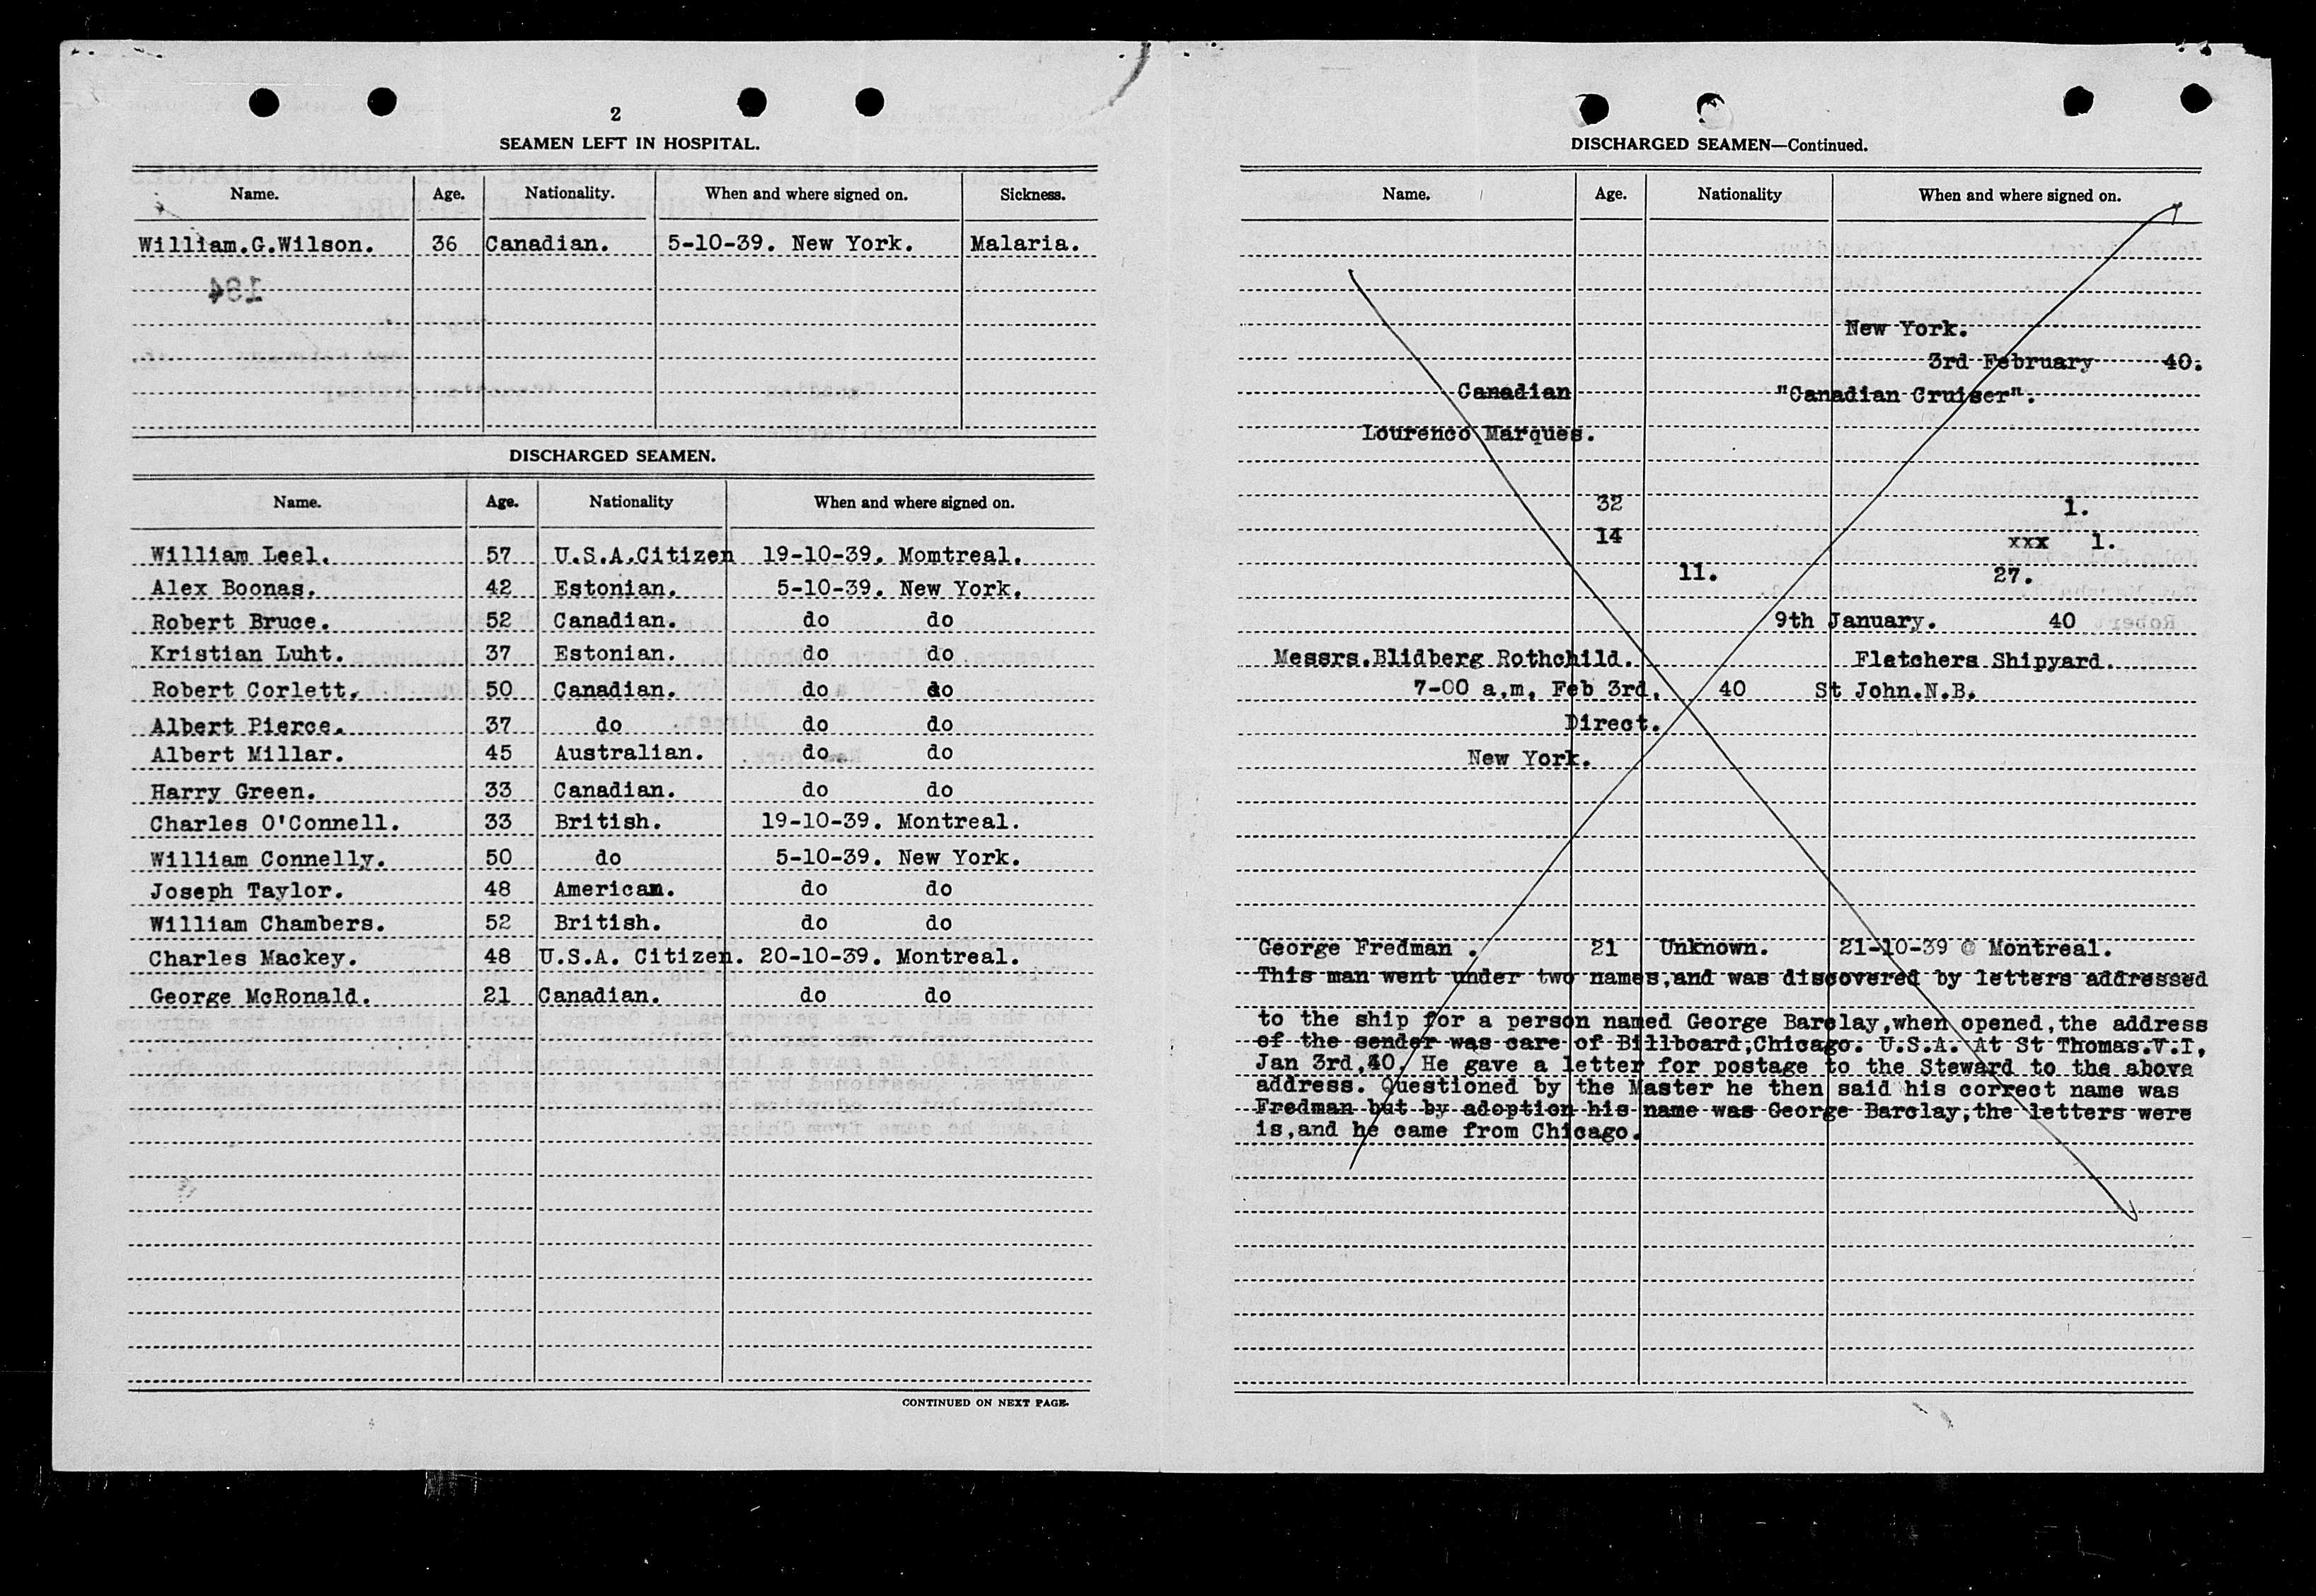 2
SEAMEN LEFT IN HOSPITAL.
Name. Age. Nationality. When and where signed on. Sickness.
William.G.Wilson. 36 Canadian. 5-10-39. New York. Malaria.
194
DISCHARGED SEAMEN.
Name. Age. Nationality When and where signed on.
William Leel. 57 U.S.A.Citizen 19-10-39. Momtreal.
Alex Boonas. 42 Estonian. 5-10-39. New York.
Robert Bruce. 52 Canadian. do do
Kristian Luht. 37 Estonian. do do
Robert Corlett. 50 Canadian. do do
Albert Pierce. 37 do do do
Albert Millar. 45 Australian. do do
Harry Green. 33 Canadian. do do
Charles O'Connell. 33 British. 19-10-39. Montreal.
William Connelly. 50 do 5-10-39. New York.
Joseph Taylor. 48 American. do do
William Chambers. 52 British. do do
Charles Mackey. 48 U.S.A. Citizen. 20-10-39. Montreal.
George McRonald. 21 Canadian. do do
CONTINUED ON NEXT PAGE.
DISCHARGED SEAMEN—Continued.
Name. Age. Nationality When and where signed on.
New York.
3rd February 40.
Canadian "Canadian Cruiser".
Lourenco Marques.
32 1.
14 xxx 1.
11. 27.
9th January. 40
Messrs.Blidberg Rothchild. Fletchers Shipyard.
7-00 a.m. Feb 3rd. 40 St John.N.B.
Direct.
New York.
George Fredman . 21 Unknown. 21-10-39 @ Montreal.
This man went under two names,and was discovered by letters addressed
to the ship for a person named George Barclay,when opened,the address
of the sender was care of Billboard,Chicago. U.S.A. At St Thomas.V.I,
Jan 3rd,40, He gave a letter for postage to the Steward to the above
address. Questioned by the Master he then said his correct name was
Fredman but by adoption his name was George Barclay,the letters were
is,and he came from Chicago.